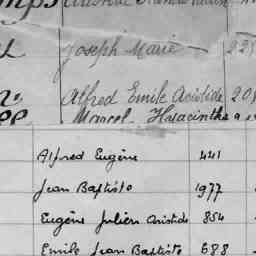 Joseph Marie 225
Alfred Emile Aristide 20
Marcel Hyacinthe
Alfred Eugène 441
Jean Baptiste 1977
Eugène Julien Aristide 854
Emile Jean Baptiste 688